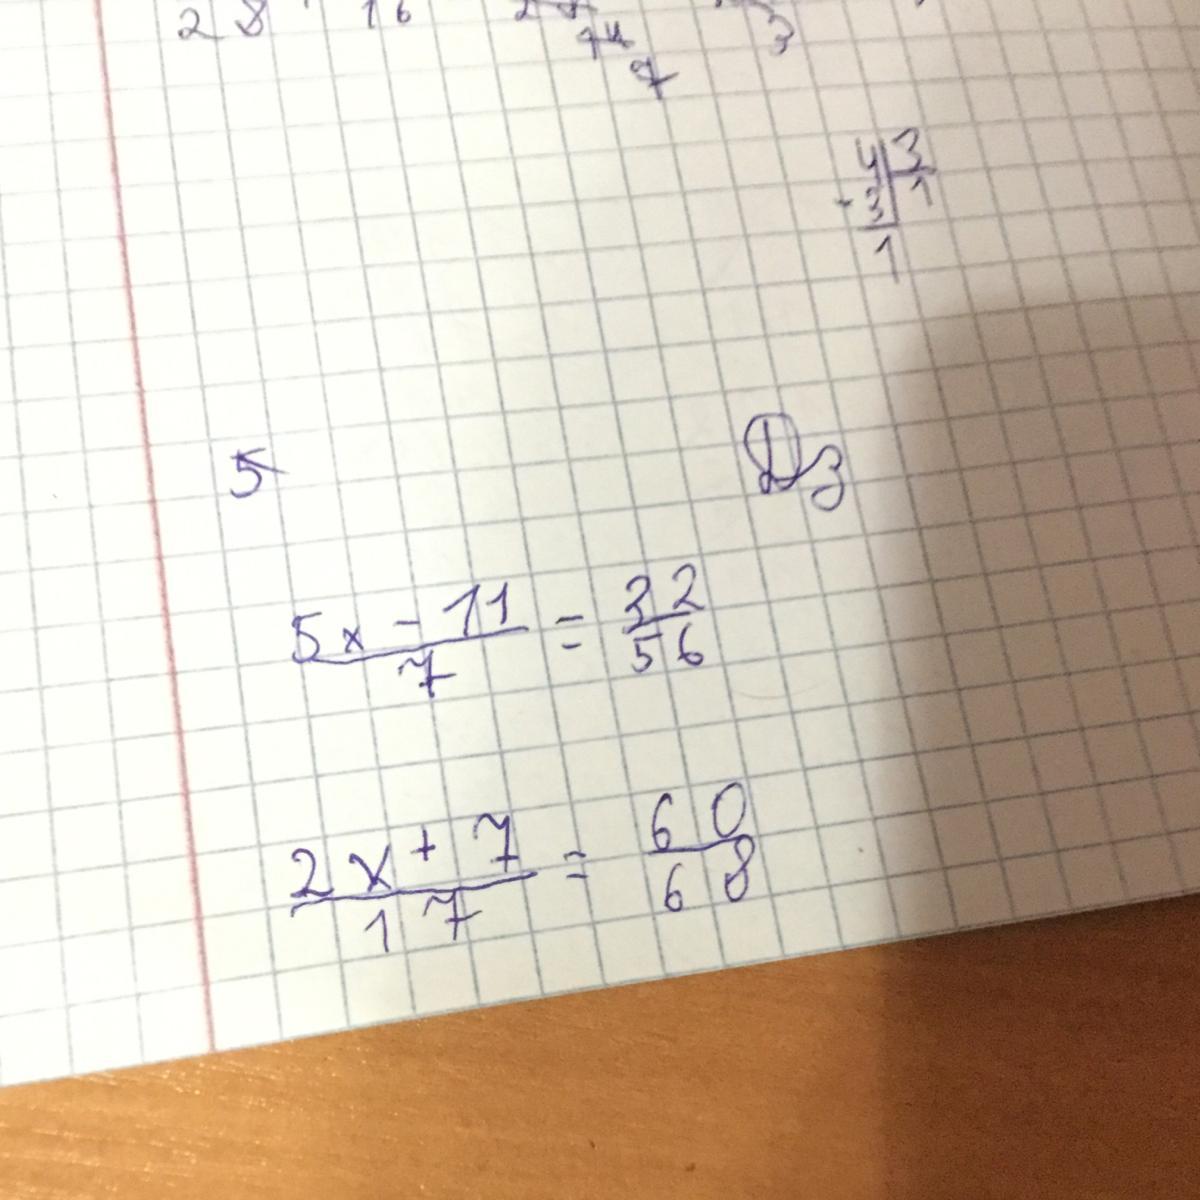 28 16
14
7 3
4 3
- 3 1
1
5 Дз
5x - 11 / 7 = 32 / 56
2x + 7 / 17 = 60 / 68